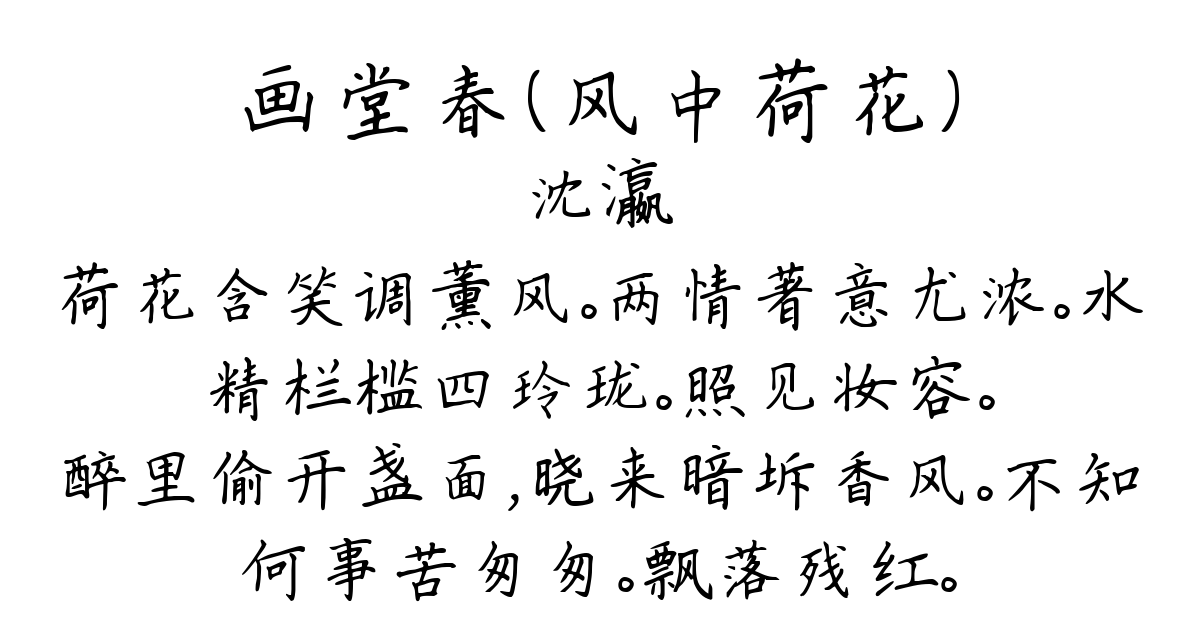 画堂春(风中荷花)
沈瀛
荷花含笑调薰风。两情著意尤浓。水
精栏槛四玲珑。照见妆容。
醉里偷开盏面,晓来暗坼香风。不知
何事苦匆匆。飘落残红。